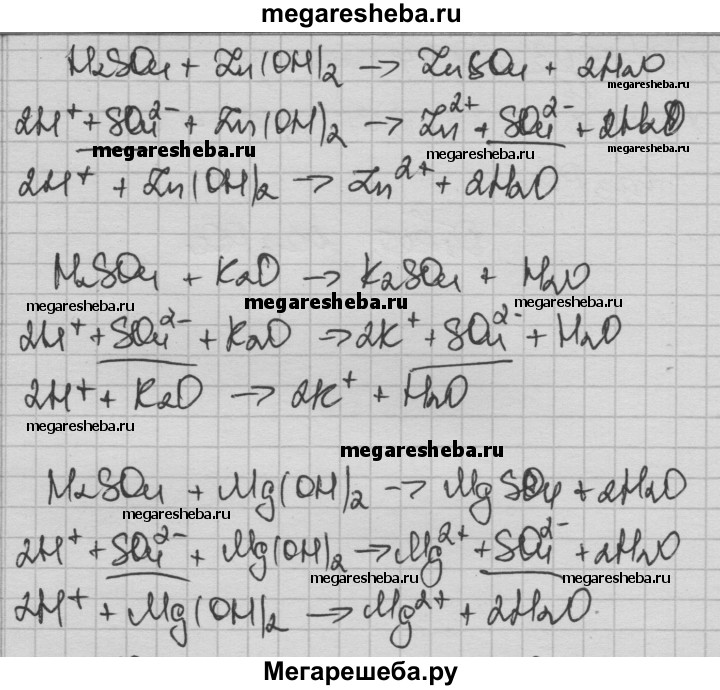 megaresheba.ru
H2SO4 + Zn(OH)2 → ZnSO4 + 2H2O
megaresheba.ru
2H⁺ + SO4²⁻ + Zn(OH)2 → Zn²⁺ + SO4²⁻ + 2H2O
megaresheba.ru megaresheba.ru
2H⁺ + Zn(OH)2 → Zn²⁺ + 2H2O
H2SO4 + K2O → K2SO4 + H2O
megaresheba.ru megaresheba.ru megaresheba.ru
2H⁺ + SO4²⁻ + K2O → 2K⁺ + SO4²⁻ + H2O
2H⁺ + K2O → 2K⁺ + H2O
megaresheba.ru
megaresheba.ru
H2SO4 + Mg(OH)2 → MgSO4 + 2H2O
megaresheba.ru megaresheba.ru
2H⁺ + SO4²⁻ + Mg(OH)2 → Mg²⁺ + SO4²⁻ + 2H2O
megaresheba.ru megaresheba.ru
2H⁺ + Mg(OH)2 → Mg²⁺ + 2H2O.
Мегарешеба.ру